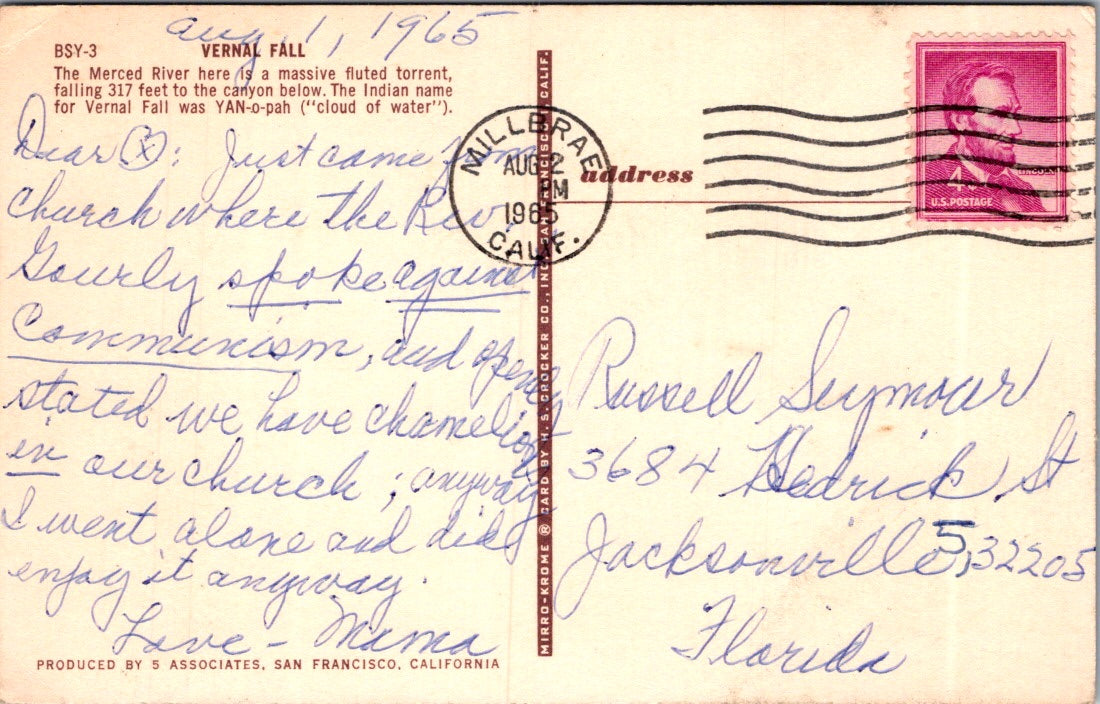 Aug. 1, 1965
BSY-3 VERNAL FALL
The Merced River here is a massive fluted torrent,
falling 317 feet to the canyon below. The Indian name
for Vernal Fall was YAN-o-pah ("cloud of water").
Dear (X): Just came from
church where the Rev.
Gourly spoke against
Communism, and openly
stated we have chamelions
in our church; anyway
I went alone and did
enjoy it anyway.
Love - Mama
PRODUCED BY 5 ASSOCIATES, SAN FRANCISCO, CALIFORNIA
MIRRO-KROME ® CARD BY H. S. CROCKER CO., INC., SAN FRANCISCO, CALIF.
MILLBRAE
AUG 2
PM
1965
CALIF.
address
LINCOLN
4¢
U.S. POSTAGE
Russell Seymour
3684 Hedrick St
Jacksonville 5, 32205
Florida